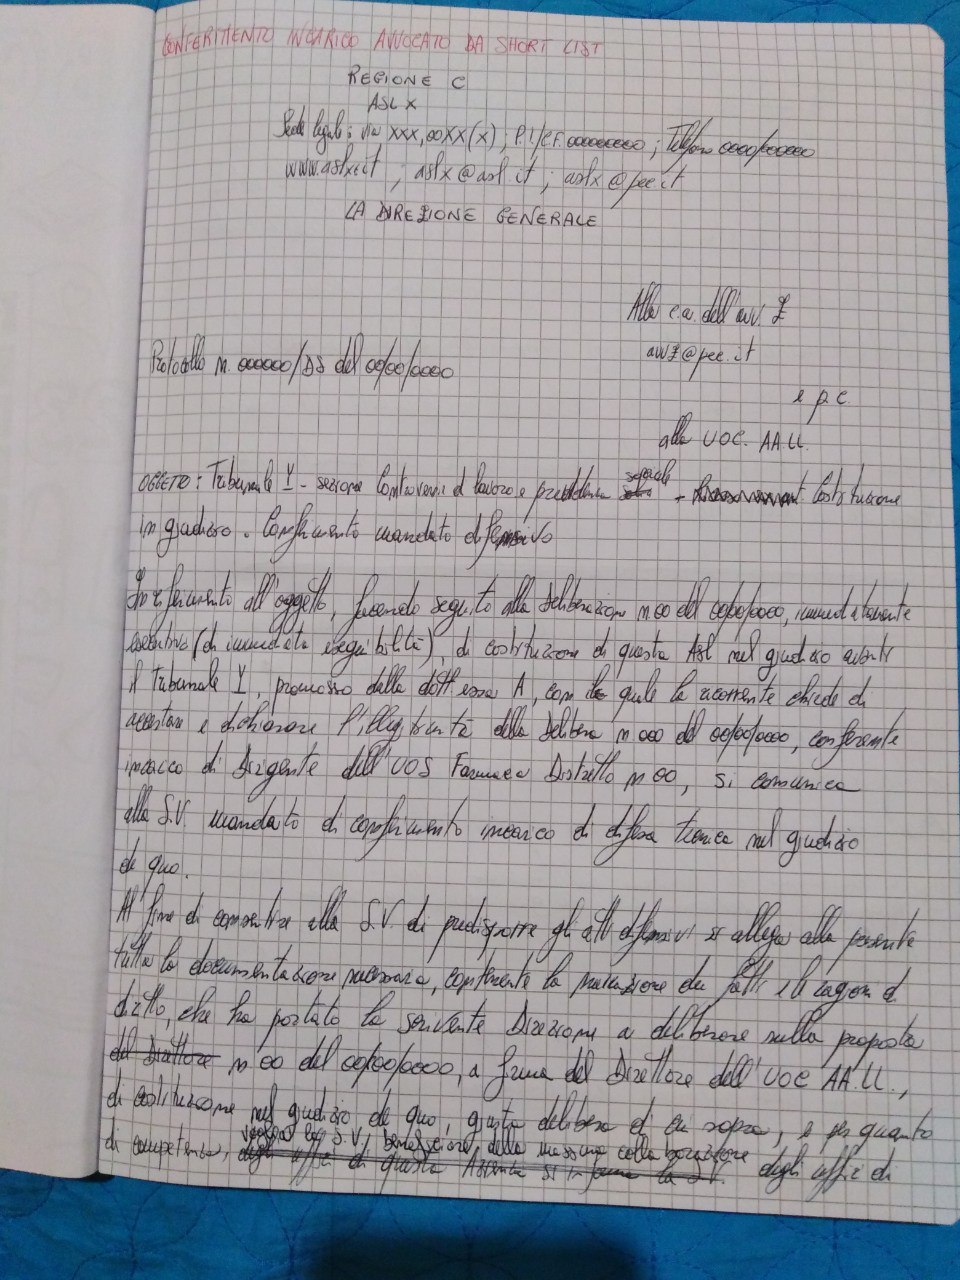 CONFERIMENTO INCARICO AVVOCATO DA SHORT LIST
REGIONE C
ASL X
Sede legale: via XXX, 00XX(X); P.I/C.F. 000000000; Telefono 0000/000000
www.aslx.it ; aslx@asl.it ; aslx@pec.it
LA DIREZIONE GENERALE
Alla c.a. dell'avv. Z
avvZ@pec.it
Protocollo n. 000000/DS del 00/00/0000
e p.c.
alla UOC. AA.LL.
OGGETTO: Tribunale Y - sezione controversie di lavoro e previdenza sociale - Costituzione
in giudizio. Conferimento mandato difensivo
In riferimento all'oggetto, facendo seguito alla Deliberazione n. 00 del 00/00/0000, immediatamente
esecutiva (di immediata eseguibilità), di costituzione di questa Asl nel giudizio avanti
il Tribunale Y, promosso dalla dott.essa A, con la quale la ricorrente chiede di
accertare e dichiarare l'illegittimità della Delibera n. 000 del 00/00/0000, conferente
incarico di Dirigente dell'UOS Farmacia Distretto n. 00, si comunica
alla S.V. mandato di conferimento incarico di difesa tecnica nel giudizio
de quo.
Al fine di consentire alla S.V. di predisporre gli atti difensivi si allega alla presente
tutta la documentazione necessaria, contenente la narrazione dei fatti e le ragioni di
diritto, che ha portato la scrivente Direzione a deliberare sulla proposta
del Direttore n. 00 del 00/00/0000, a firma del Direttore dell'UOC AA.LL.,
di costituzione nel giudizio de quo, giusta delibera di cui sopra, e per quanto
voglia la S.V. beneficiare della massima collaborazione
di competenza, degli uffici di questa Azienda si informa la S.V. degli uffici di